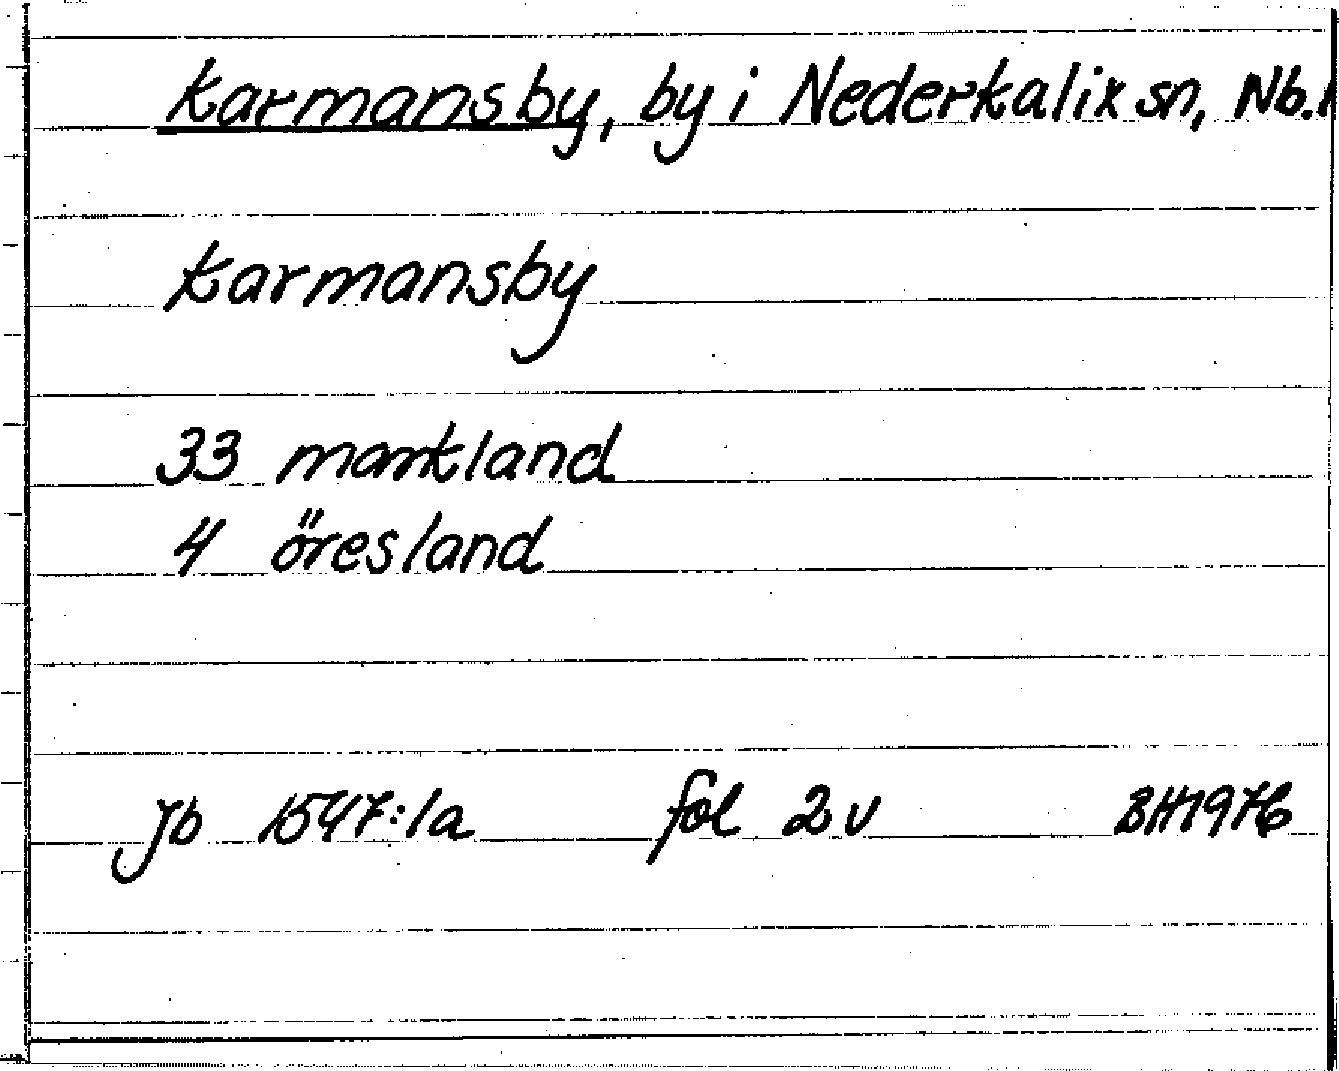 Karmansby, by i Nederkalix sn, Nb.
Karmansby
33 markland
4 öresland
Jb 1547:1a fol 2 v BH1976